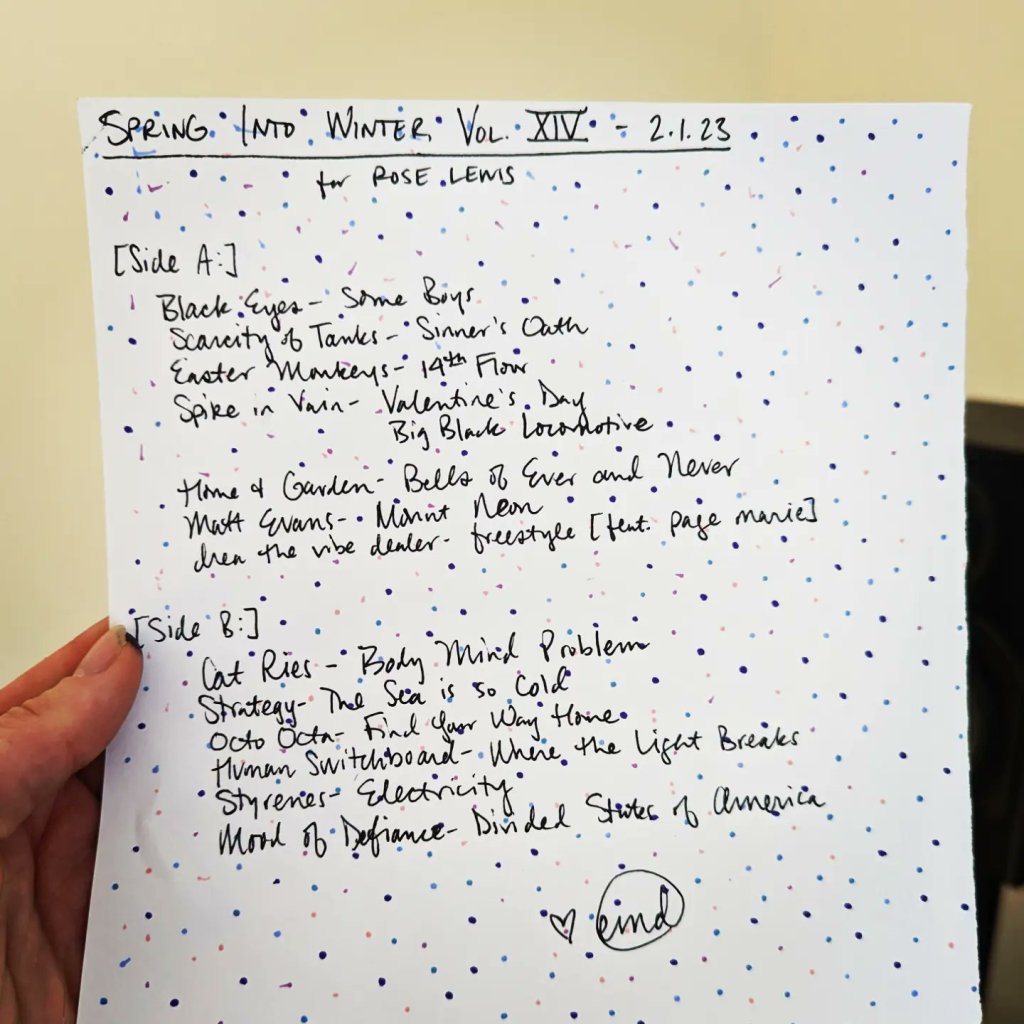 SPRING INTO WINTER, VOL. XIV - 2.1.23
for ROSE LEWIS
[Side A:]
Black Eyes - Some Boys
Scarcity of Tanks - Sinner's Oath
Easter Monkeys - 14th Floor
Spike in Vain - Valentine's Day
Big Black Locomotive
Home & Garden - Bells of Ever and Never
Matt Evans - Mount Neon
drea the vibe dealer - freestyle [feat. page marie]
[Side B:]
Cat Ries - Body Mind Problem
Strategy - The Sea is so Cold
Octo Octa - Find Your Way Home
Human Switchboard - Where the Light Breaks
Styrenes - Electricity
Mood of Defiance - Divided States of America